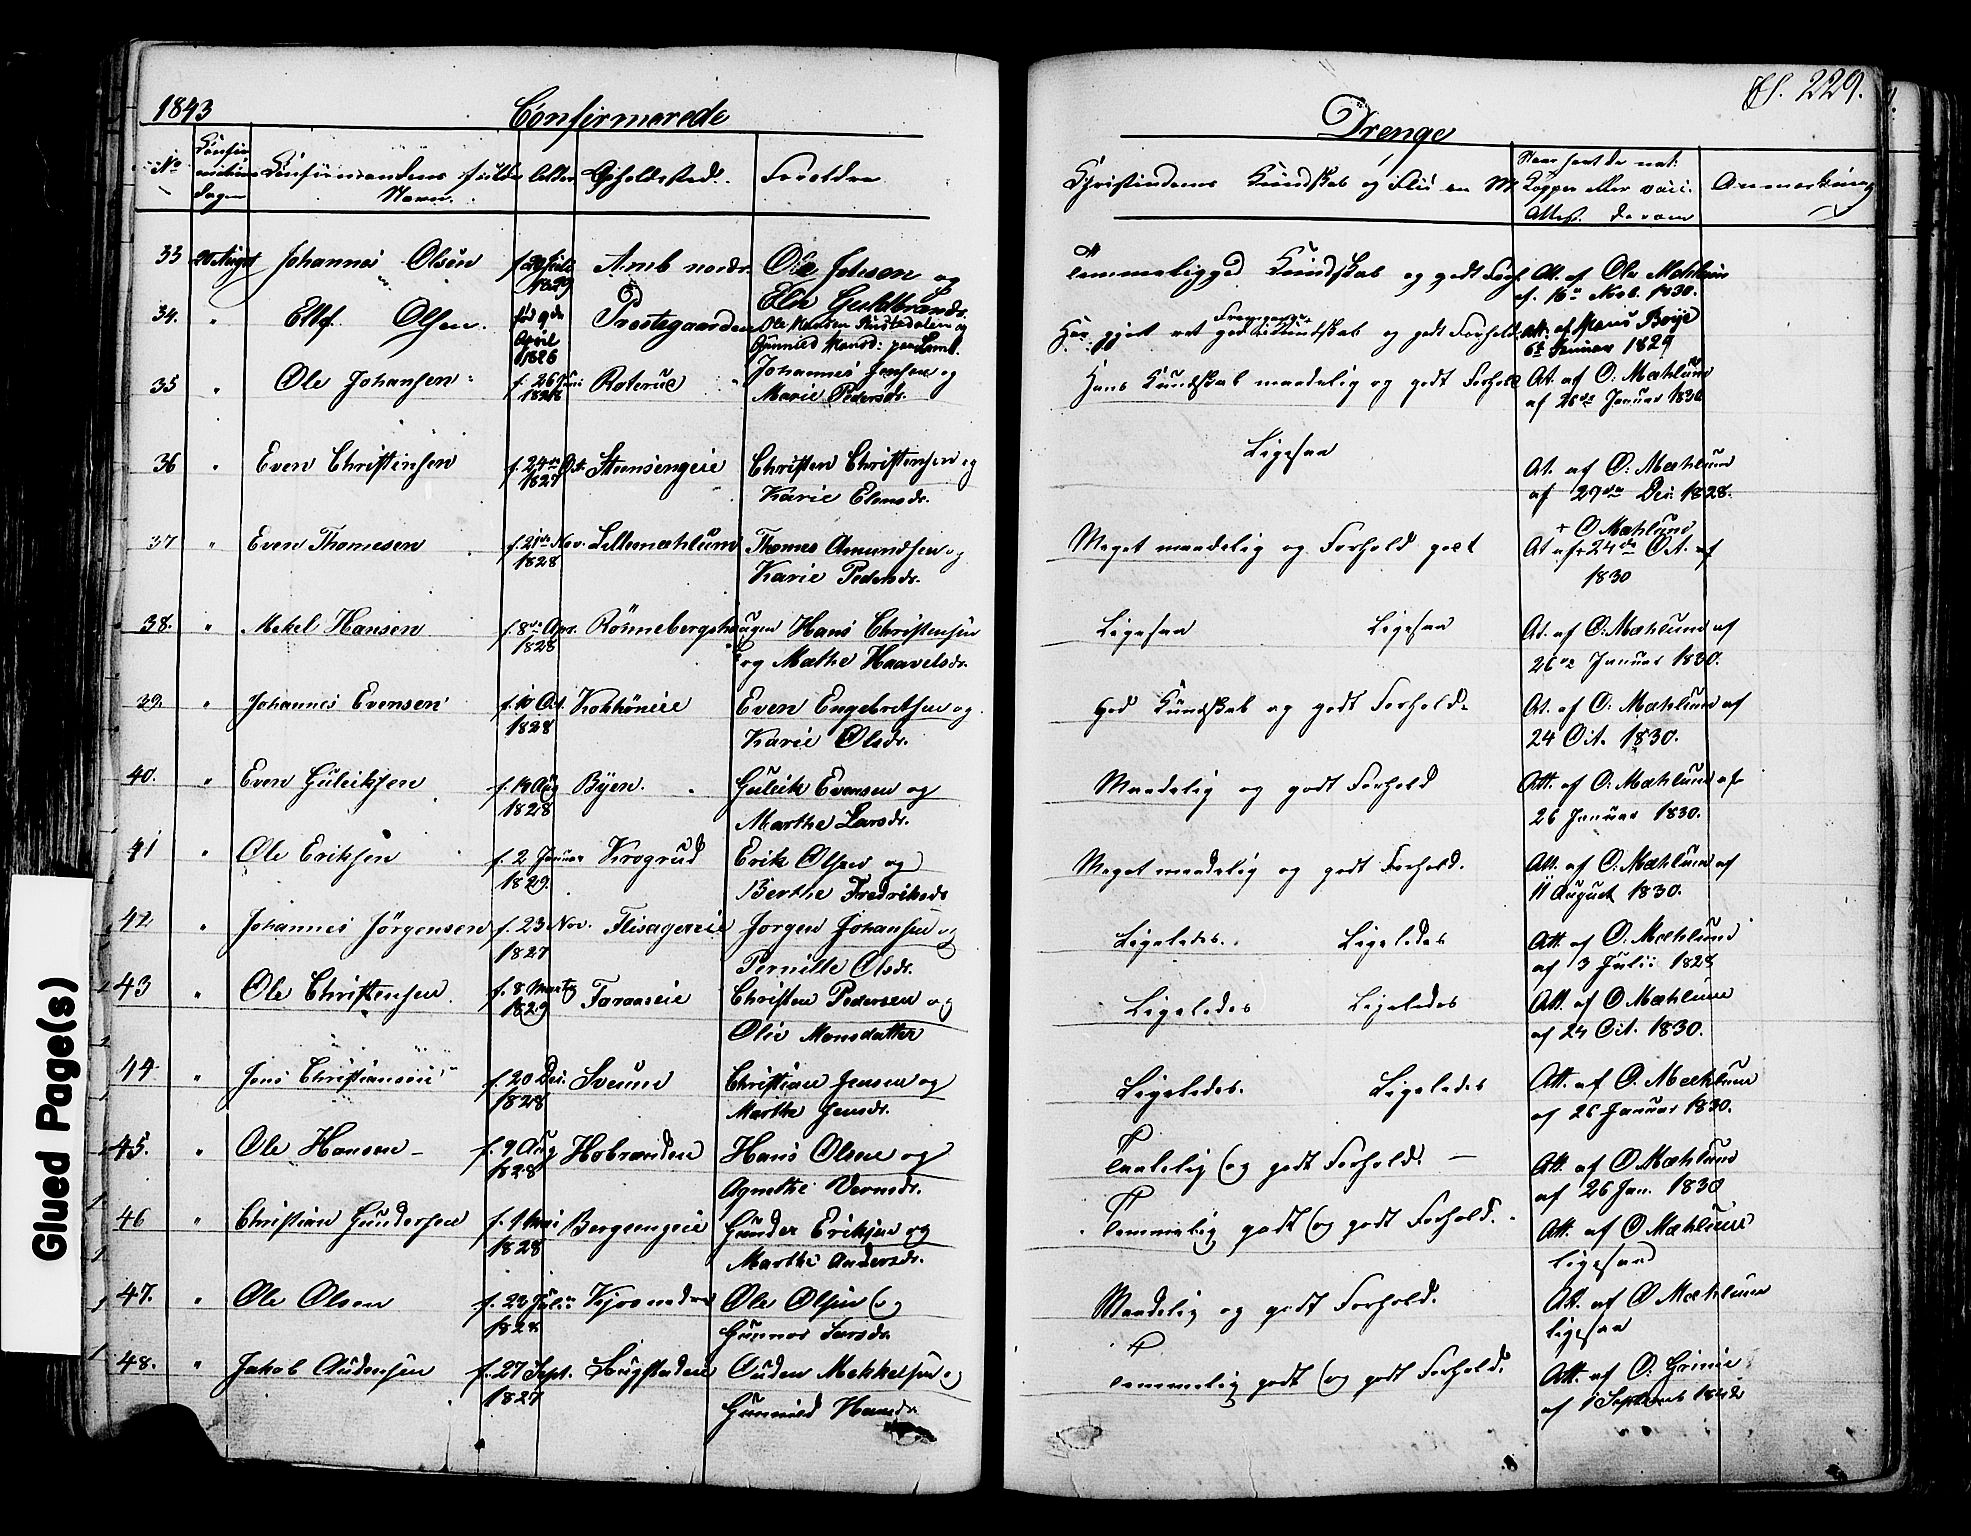 1843
Confirmerede
No
Confirmations Dagen
Confirmandens fulde Navn.
Alder
Opholdssted.
Forældre
33 20 August Johannes Olsen f. 1829 Amb nordr. Ole Johnson og
Elie Guldbrandsdr.
34. " Ellef Olsen. fød 9de April 1826 Prestegaarden Ole Hansen og
Gunnild
35 " Ole Johansen f. 26 1828 Roterud Johannes Jensen og
Marie Pedersdr.
36 " Even Christensen f. 24de Oct. 1827 Steensengeie Christen Christensen og
Karie
37 " Even Thomesen f. 21de Nov. 1828 Lillemæhlum Thomes Amundsen og
Karie Pedersdr.
38. " Mekel Hansen f. 8de Apr. 1828 Rönnebergshaugen Hans Christensen
og Mathe Haavelsdr.
39. " Johannes Evensen f. 10 Oct. 1828 Even Engebretsen og
Karie Olsdr.
40. " Even Guleiksen f. Aug 1828 Byen. Guleik Evensen og
Marthe Larsdr.
41 " Ole Eriksen f. 2 Januar 1829. Krogrud Erik Olsen og
Berthe Fredriksdr
42 " Johannes Jörgensen f. 23 Nov. 1827 Flisagereie Jorgen Johansen og
Pernille Olsdr.
43 " Ole Christensen f. 8 Marty 1829 Taraaseie Christen Pedersen og
Olie Monsdatter
44 " Jens Christiansen f. 20 Dec. 1828 Sveum Christian Jensen og
Marthe Jensdr.
45. " Ole Hansen f. 9 Aug 1828 Hobranden Hans Olsen og
Agnethe
46 " Christian Gundersen f. 1 Mai 1828 Bergeengeie Gunder Eriksen og
Marthe Andersdr.
47. " Ole Olsen f. 22 Julii 1828 Ole Olsen og
Gunnor Larsdr.
48. " Jakob Audensen f. 27 Sept. 1827 Auden Mekkelsen og
Gunnild Hansdr
Glued Page(s)
Drenge
Fol. 229.
Christendoms Kundskab og Flid
Naar havt de nat: Kopper eller vacc. Attest. derom
Anmærkning
Temmeligged Kundskab og godt Forh. At. af Ole Mæhlum
af 16de Novb. 1830.
Har gjort ret god Fremgang i Kundskab og godt Forhold Att: af Hans Boije
6te Januar 1829
Hans Kundskab maadelig og godt Forhold At. af O: Mæhlum
af 26de Januar 1830
Ligesaa At. af O: Mæhlum
af 27de Dec. 1828.
Meget maadelig og Forhold godt + O Mæhlum
At af + 24de Oct. af
1830
Ligesaa Ligesaa At. af O: Mæhlum af
26de Januar 1830.
God Kundskab og godt Forhold. At. af O: Mæhlum af
24 Oct. 1830.
Maadelig og godt Forhold Att. af O: Mæhlum af
26 Januar 1830.
Meget maadelig og godt Forhold. Att. af O: Mæhlum af
11 August 1830.
Ligeledes. Ligeledes Att. af O. Mæhlum
af 3 Julii 1828
Ligeledes Ligeledes Att. af O Mæhlum
af 24 Oct. 1830.
Ligeledes. Ligeledes Att. af O. Mæhlum
af 26 Januar 1830.
Taalelig og godt Forhold. Att. af O Mæhlum
af 26 Jan. 1830
Temmelig godt og godt Forhold. Att. af O Mæhlum
ligesaa
Maadelig og godt Forhold. Att. af O Mæhlum
ligesaa
Temmelig godt og godt Forhold. Att. af O: Grimie
af 1 September 1842